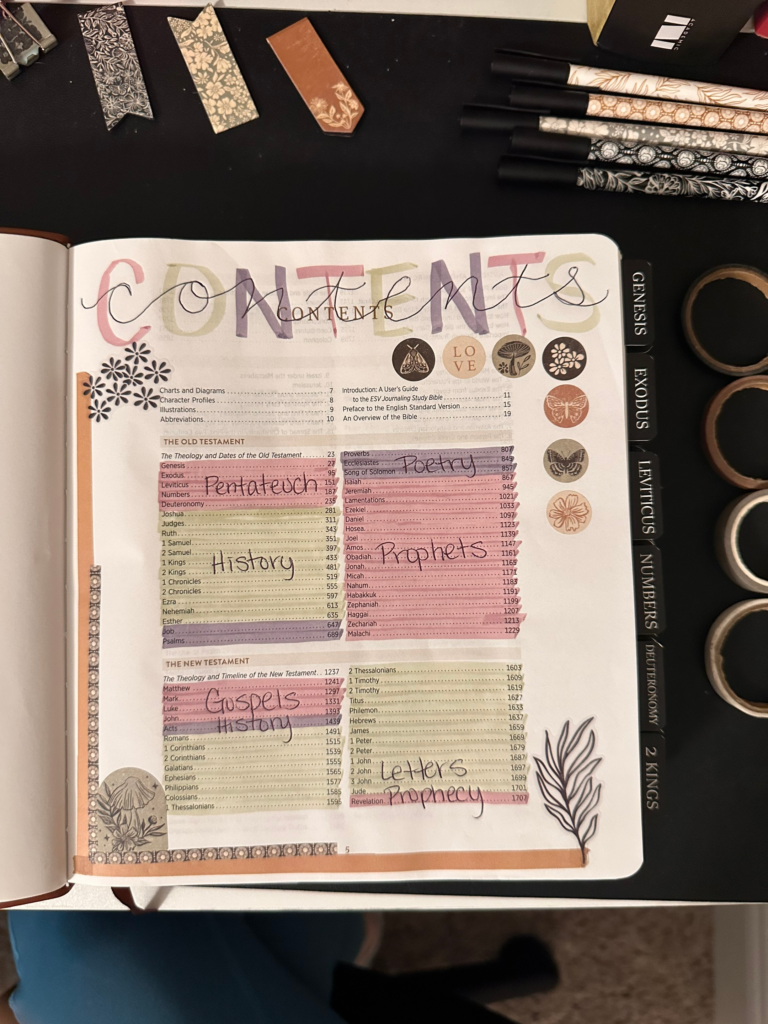 CONTENTS
contents
CONTENTS
LO
VE
Charts and Diagrams 7
Character Profiles 8
Illustrations 9
Abbreviations 10
Introduction: A User's Guide
to the ESV Journaling Study Bible 11
Preface to the English Standard Version 15
An Overview of the Bible 19
THE OLD TESTAMENT
The Theology and Dates of the Old Testament 23
Genesis 27
Exodus 95
Leviticus 151
Numbers 187
Deuteronomy 235
Pentateuch
Joshua 281
Judges 311
Ruth 343
1 Samuel 351
2 Samuel 397
1 Kings 433
2 Kings 481
1 Chronicles 519
2 Chronicles 555
Ezra 597
Nehemiah 613
Esther 635
History
Job 647
Psalms 689
Proverbs 807
Ecclesiastes 845
Song of Solomon 857
Poetry
Isaiah 867
Jeremiah 945
Lamentations 1021
Ezekiel 1033
Daniel 1097
Hosea 1123
Joel 1139
Amos 1147
Obadiah 1161
Jonah 1165
Micah 1171
Nahum 1183
Habakkuk 1191
Zephaniah 1199
Haggai 1207
Zechariah 1213
Malachi 1229
Prophets
THE NEW TESTAMENT
The Theology and Timeline of the New Testament 1237
Matthew 1241
Mark 1297
Luke 1331
John 1393
Gospels
Acts 1439
History
Romans 1491
1 Corinthians 1515
2 Corinthians 1539
Galatians 1555
Ephesians 1565
Philippians 1577
Colossians 1585
1 Thessalonians 1595
2 Thessalonians 1603
1 Timothy 1609
2 Timothy 1619
Titus 1627
Philemon 1633
Hebrews 1637
James 1659
1 Peter 1669
2 Peter 1679
1 John 1687
2 John 1697
3 John 1699
Jude 1701
Letters
Revelation 1707
Prophecy
5
GENESIS
EXODUS
LEVITICUS
NUMBERS
DEUTERONOMY
2 KINGS